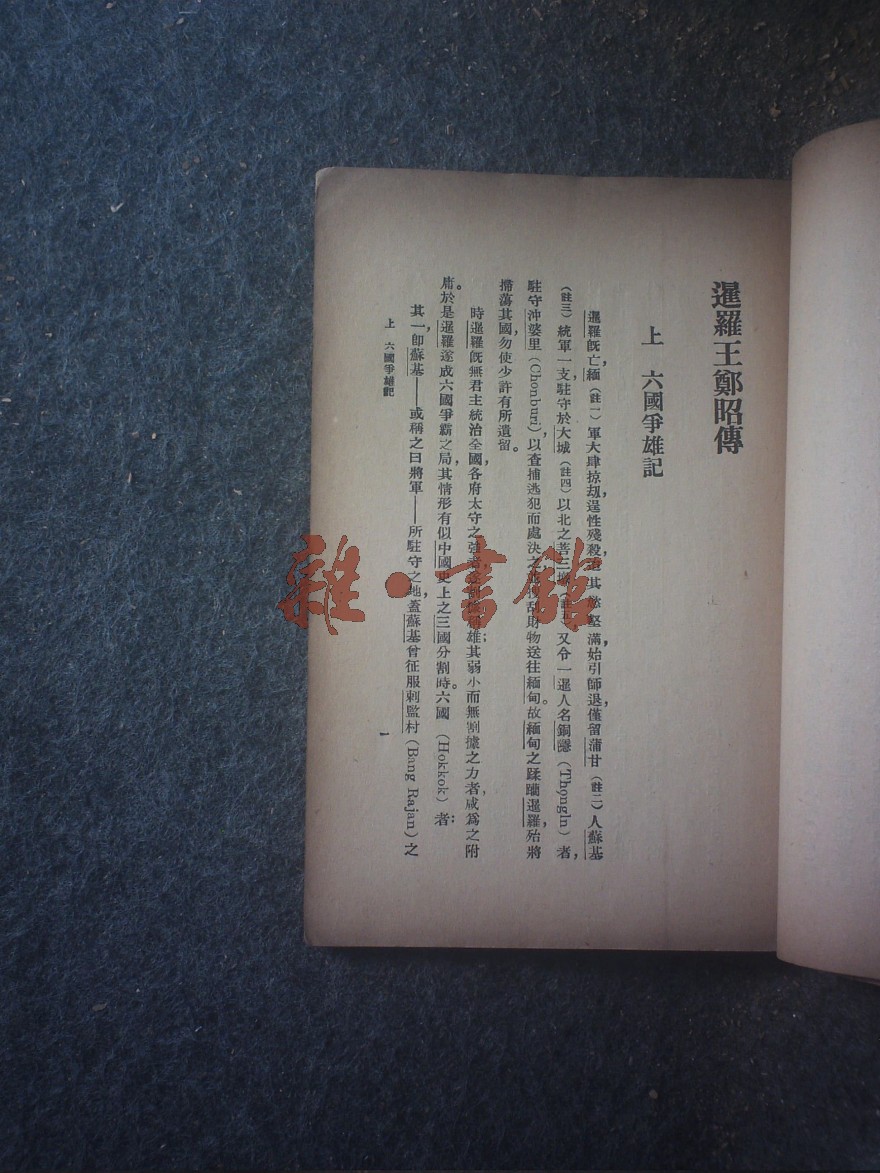 暹羅王鄭昭傳
上 六國爭雄記
暹羅旣亡緬(註一)軍大肆掠刼,逞性殘殺,迨其慾壑滿,始引師退,僅留蒲甘(註二)人蘇基
(註三)統軍一支,駐守於大城(註四)以北之菩三墩(註五)又令一暹人名銅(Thongin)者,
駐守沖婆里(Chonburi),以查捕逃犯而處決之,刮財物送往緬甸。故緬甸之蹂躪暹羅,殆將
掃蕩其國,勿使少許有所遺留。
時暹羅旣無君主統治全國,各府太守之強者雄;其弱小而無割據之力者,咸爲之附
庸。於是暹羅遂成六國爭霸之局,其情形有似中國史上之三國分割時。六國(Hokkok)者:
其一,卽蘇基——或稱之曰將軍——所駐守之地,蓋蘇基曾征服剌監村(Bang Rajan)之
上 六國爭雄記
一
雜·書館